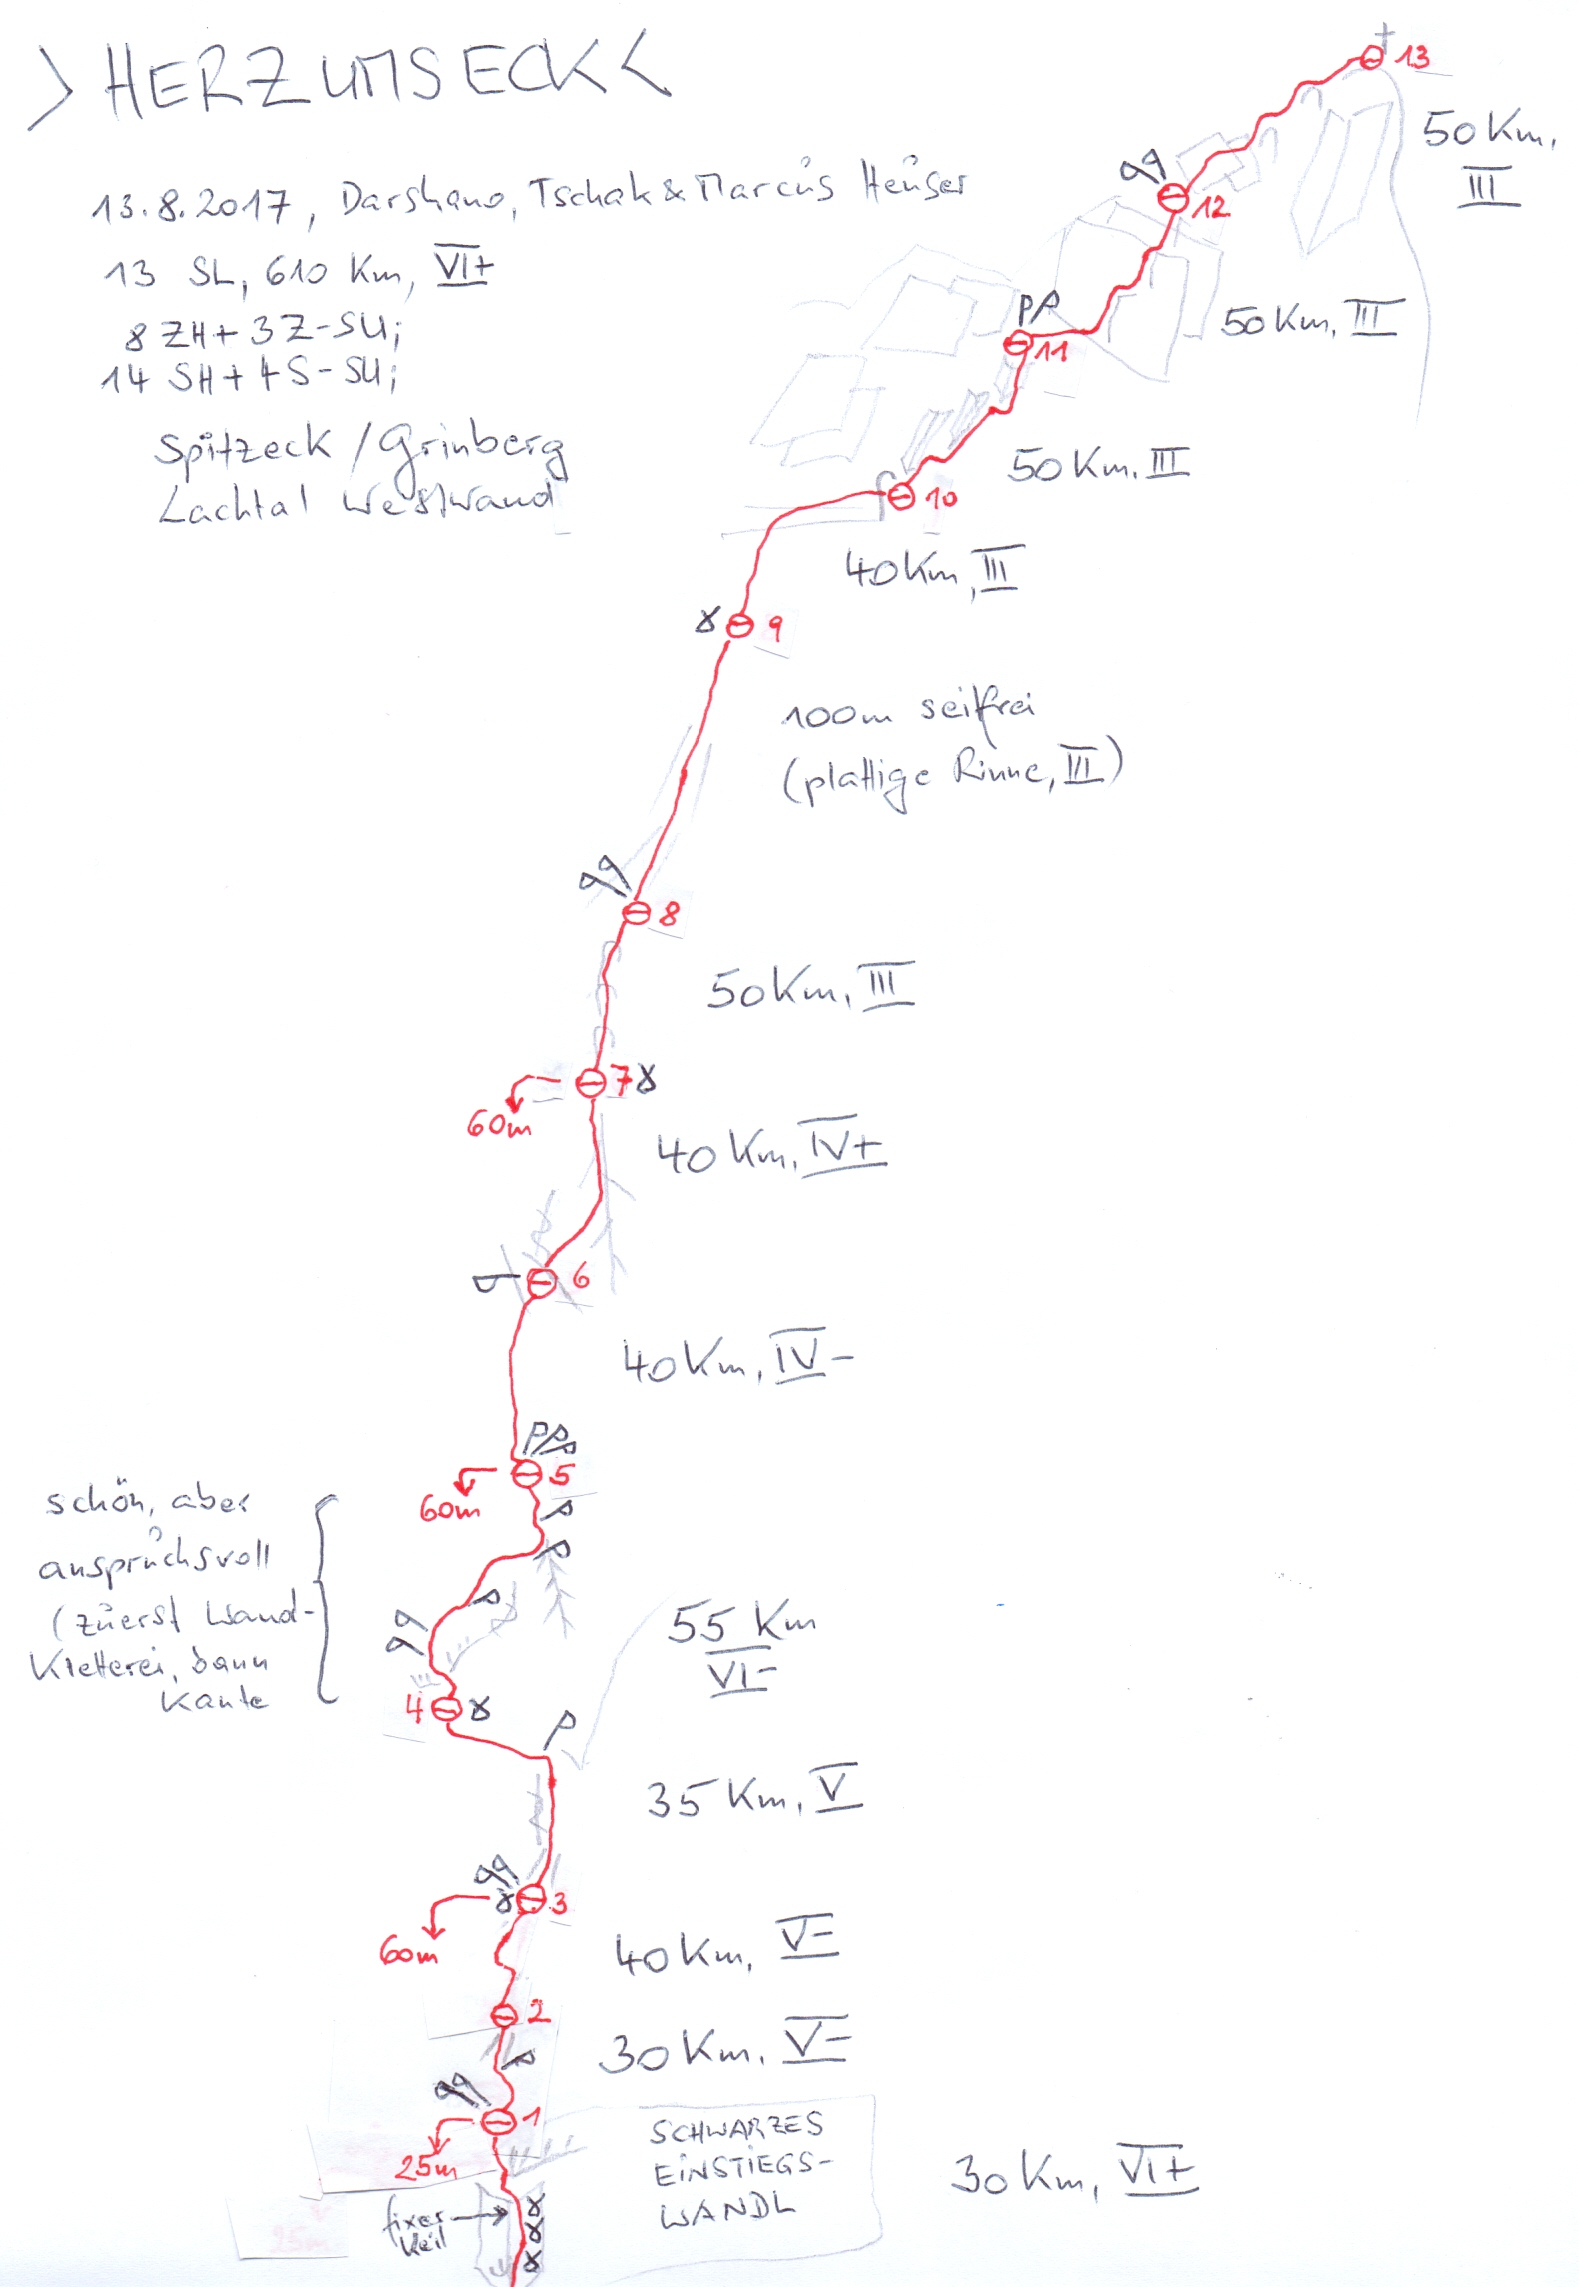 >HERZUMSECK<
13.8.2017, Darshano, Tschak & Marcus Heuser
13 SL, 610 Km, VI+
8 ZH + 3 Z-SU;
14 SH + 4 S-SU;
Spitzeck / Grinberg
Lachtal Westwand
13
50 Km,
III
12
50 Km, III
11
50 Km. III
10
40 Km, III
9
100m seilfrei
(plattige Rinne, III)
8
50 Km, III
7
60m
40 Km, IV+
6
40 Km, IV-
5
60m
schön, aber
anspruchsvoll
(zuerst Wand-
kletterei, dann
Kante
55 Km
VI-
4
35 Km, V
3
60m
40 Km, V-
2
30 Km. V-
1
25m
SCHWARZES
EINSTIEGS-
WANDL
30 Km, VI+
fixer
Keil